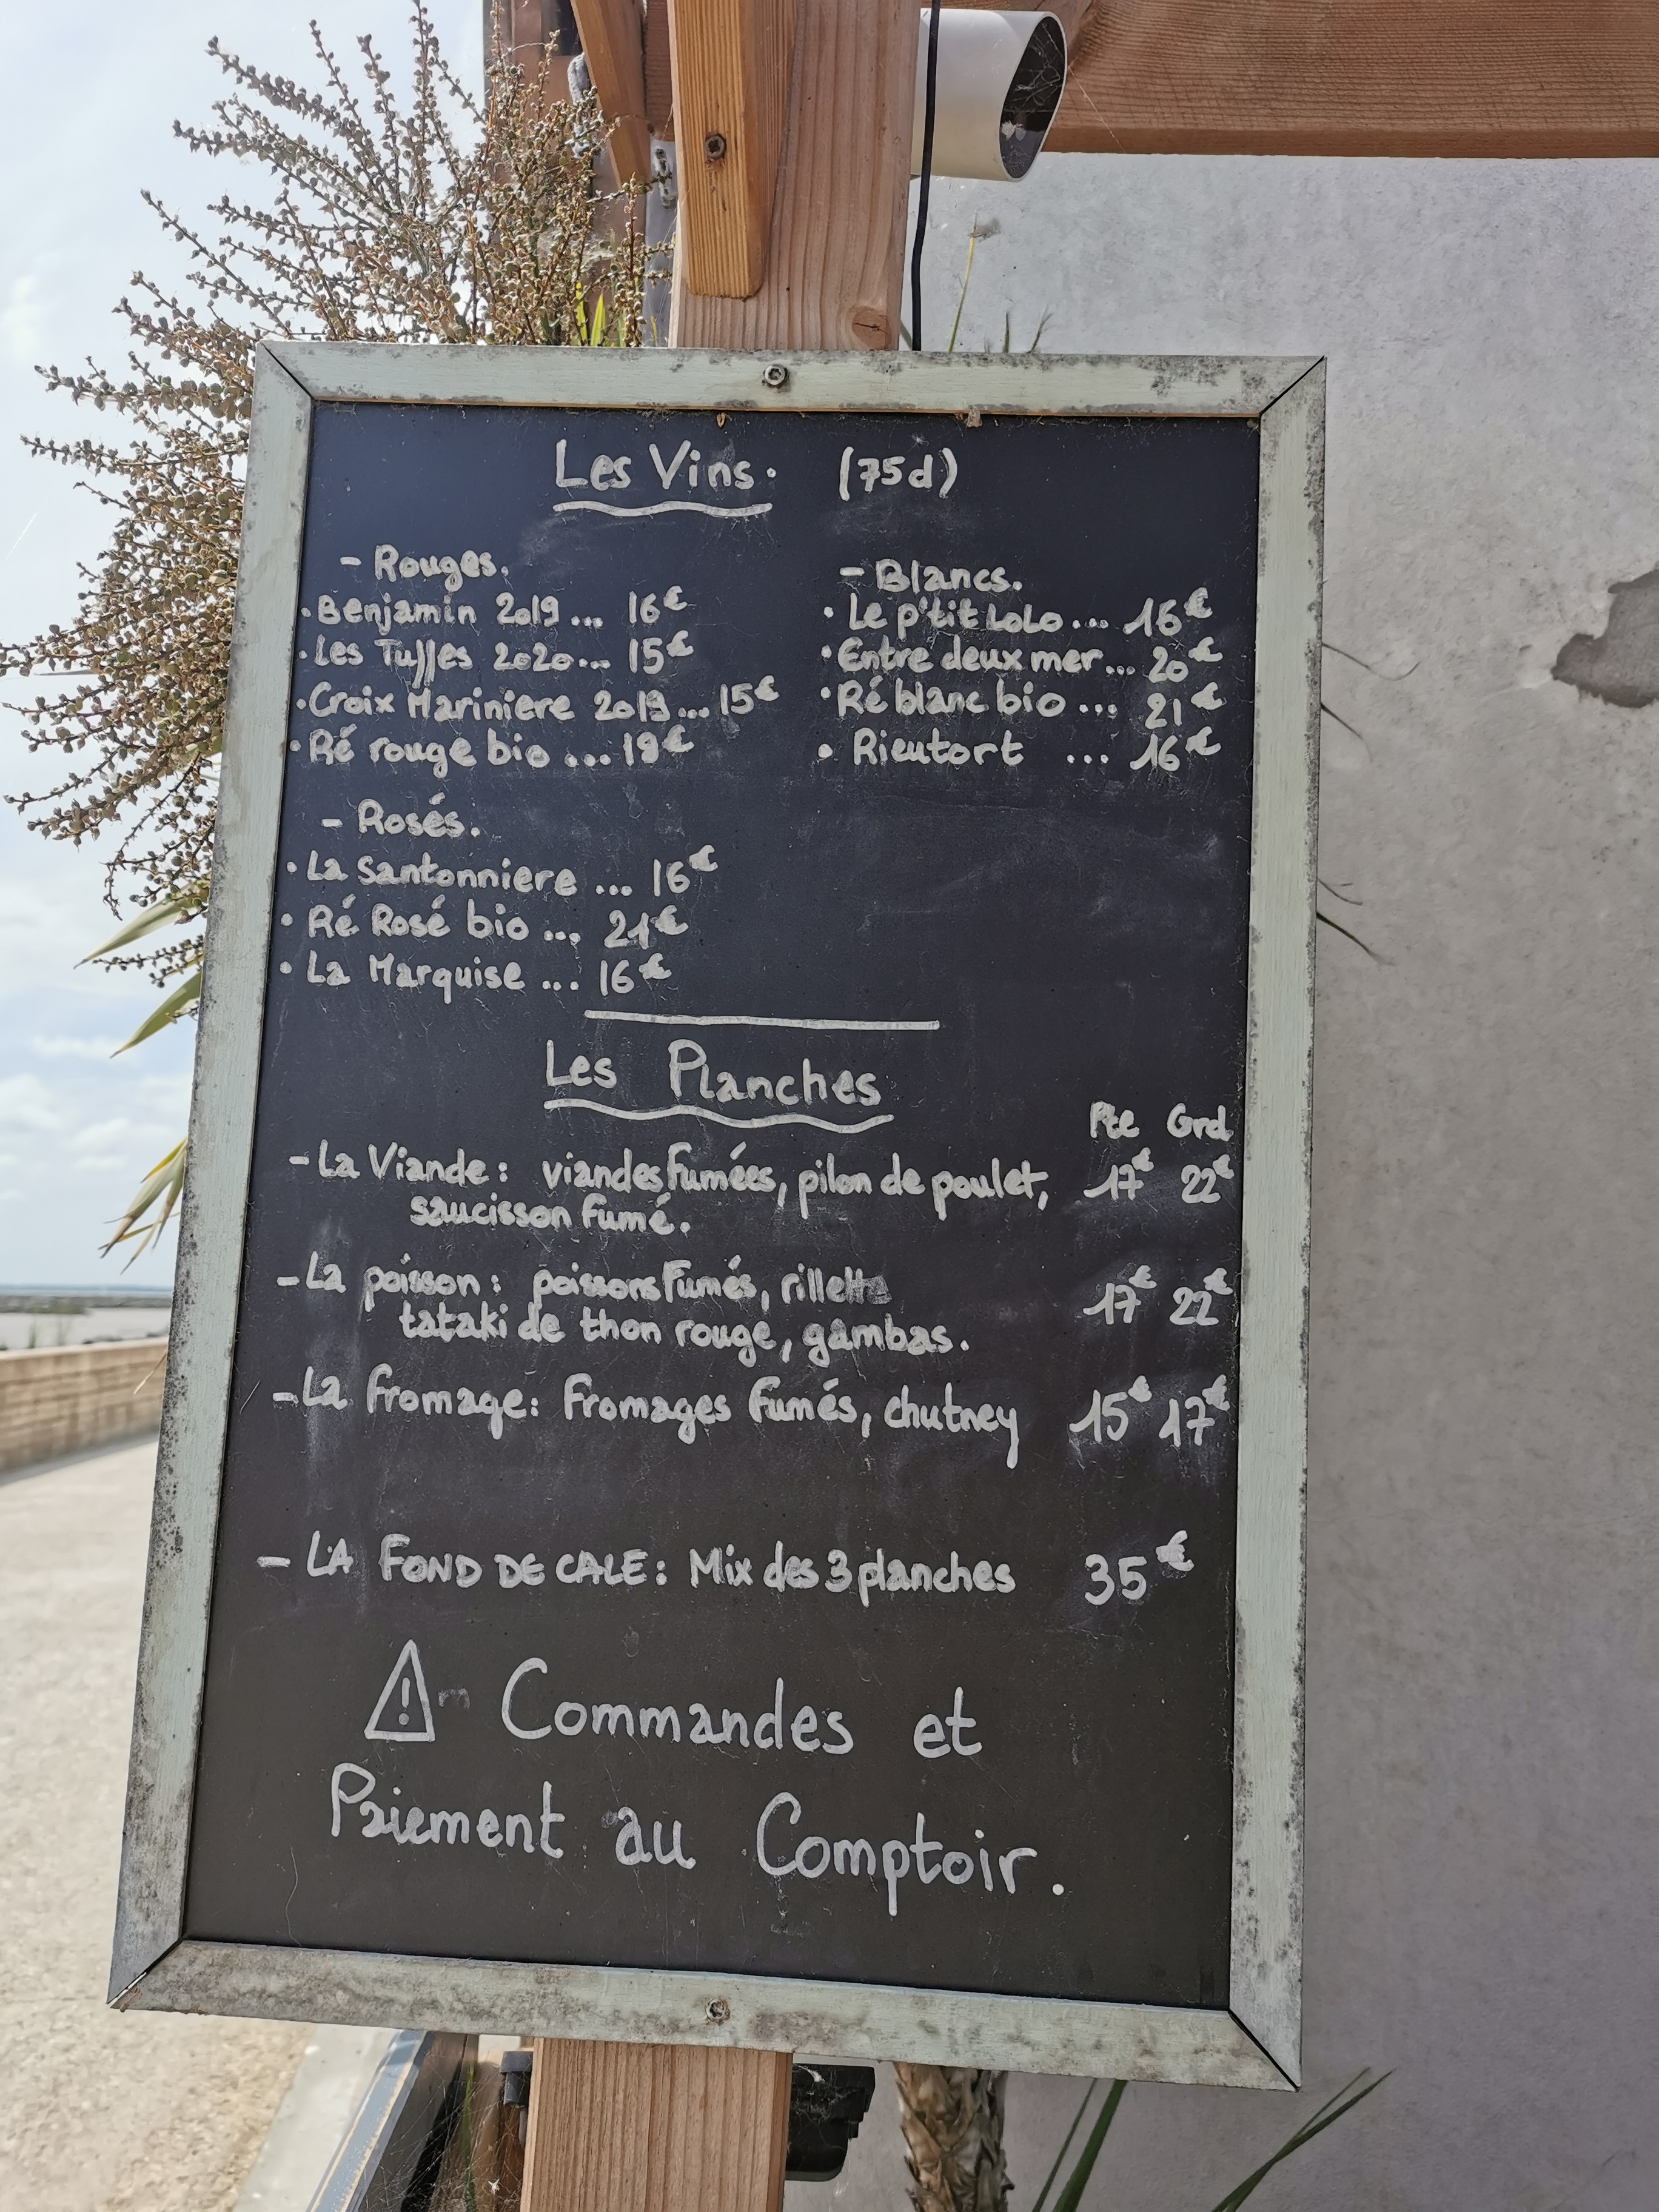 Les Vins. (75cl)
- Rouges.
• Benjamin 2019 ... 16€
• Les Tuffes 2020... 15€
• Croix Mariniere 2019... 15€
• Ré rouge bio ... 19€
- Blancs.
• Le p'tit LoLo ... 16€
• Entre deux mer... 20€
• Ré blanc bio ... 21€
• Rieutort ... 16€
- Rosés.
• La Santonniere ... 16€
• Ré Rosé bio ... 21€
• La Marquise ... 16€
Les Planches
Pte Grd
- La Viande : viandes fumées, pilon de poulet, 17€ 22€
saucisson fumé.
- La poisson : poissons Fumés, rillette 17€ 22€
tataki de thon rouge, gambas.
- La fromage : Fromages fumés, chutney 15€ 17€
- LA FOND DE CALE : Mix des 3 planches 35€
⚠ Commandes et
Paiement au Comptoir.